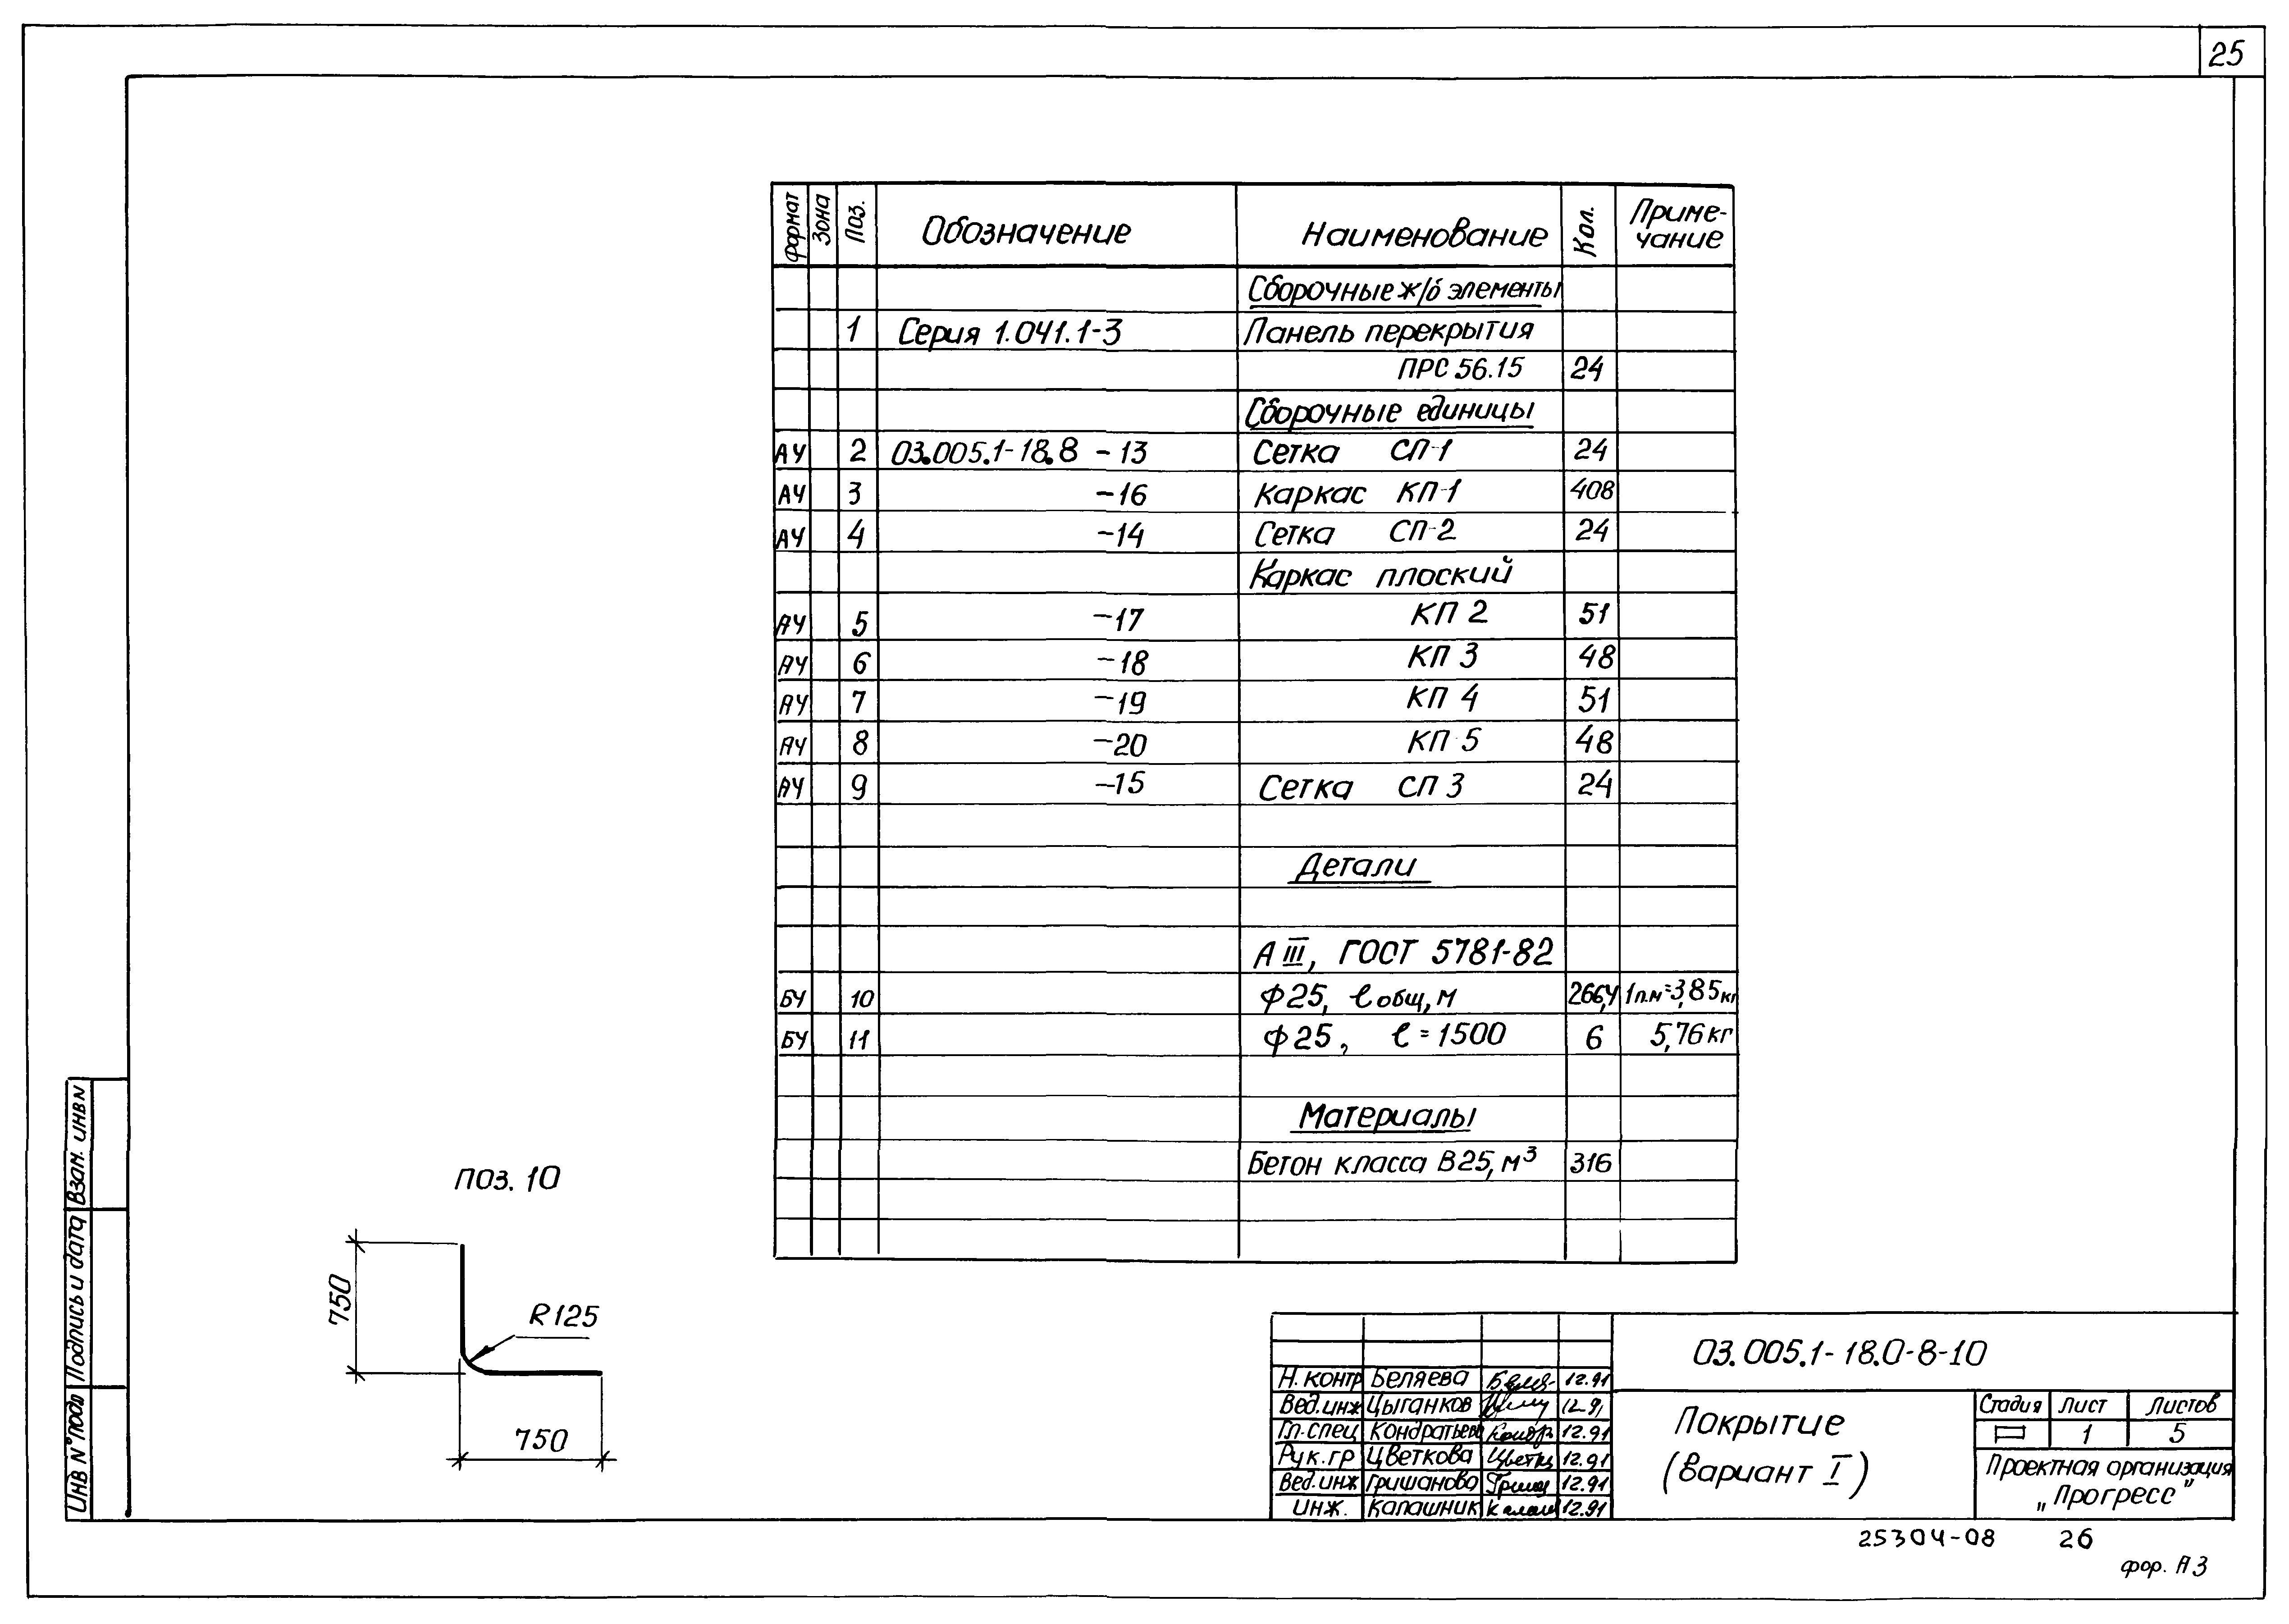 25
Формат Зона Поз. Обозначение Наименование Кол. Приме-
чание
Сборочные ж/б элементы
1 Серия 1.041.1-3 Панель перекрытия
ПРС 56.15 24
Сборочные единицы
А4 2 03.005.1-18.8 -13 Сетка СП-1 24
А4 3 -16 Каркас КП-1 408
А4 4 -14 Сетка СП-2 24
Каркас плоский
А4 5 -17 КП 2 51
А4 6 -18 КП 3 48
А4 7 -19 КП 4 51
А4 8 -20 КП 5 48
А4 9 -15 Сетка СП 3 24
Детали
А III, ГОСТ 5781-82
БЧ 10 ϕ25, ℓ общ, м 266,4 1п.м=3,85кг
БЧ 11 ϕ25, ℓ=1500 6 5,76 кг
Материалы
Бетон класса В25, м³ 316
поз. 10
750
R125
750
Взам. инв N
Подпись и дата
Инв N° подл
03.005.1-18.0-8-10
Н. контр Беляева 12.91
Вед. инж Цыганков 12.91
Гл. спец Кондратьев 12.91
Рук. гр Цветкова 12.91
Вед. инж Гришанова 12.91
инж. Калашник 12.91
Покрытие
(вариант I)
Стадия Лист Листов
1 5
Проектная организация
„Прогресс"
25304-08 26
фор. А3